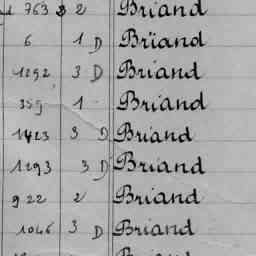 763 2 Briand
6 1 D Briand
1292 3 D Briand
359 1 Briand
1423 3 D Briand
1293 3 D Briand
922 2 Briand
1046 3 D Briand